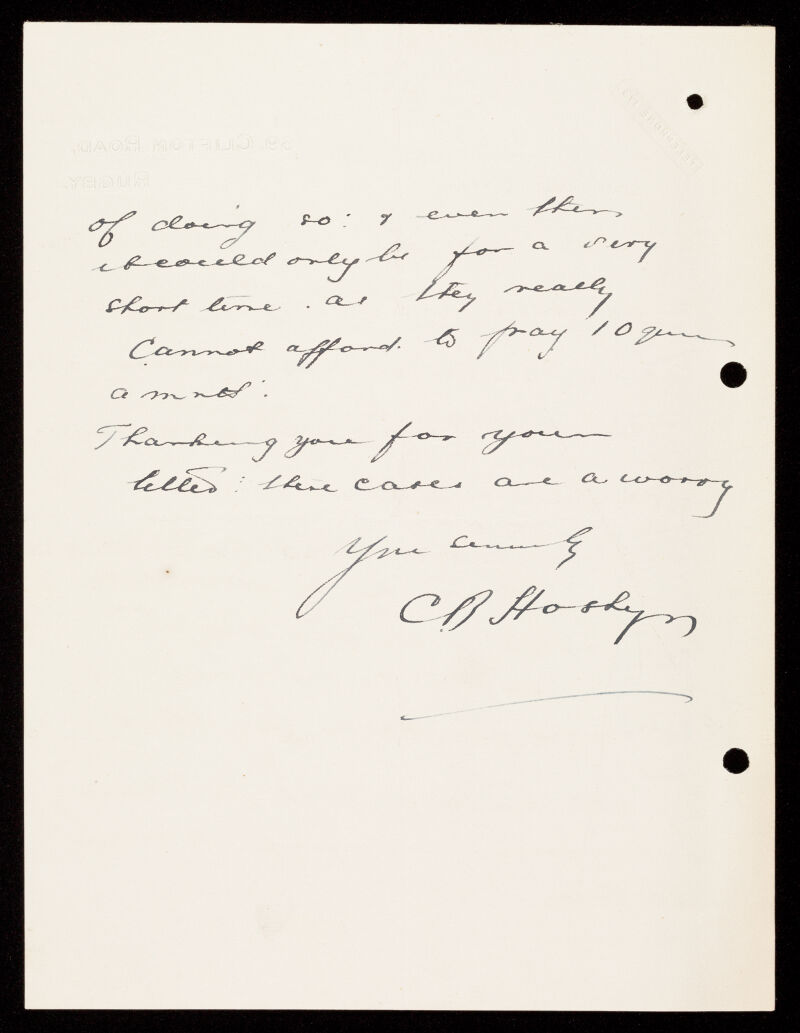 59, CLIFTON ROAD,
RUGBY.
of doing so: & even then
it could only be for a very
short time. as they really
cannot afford. to pay 10 gns
a
Thanking you for your
letter: these cases are a worry
Yrs sincerely
C B Hoskyn